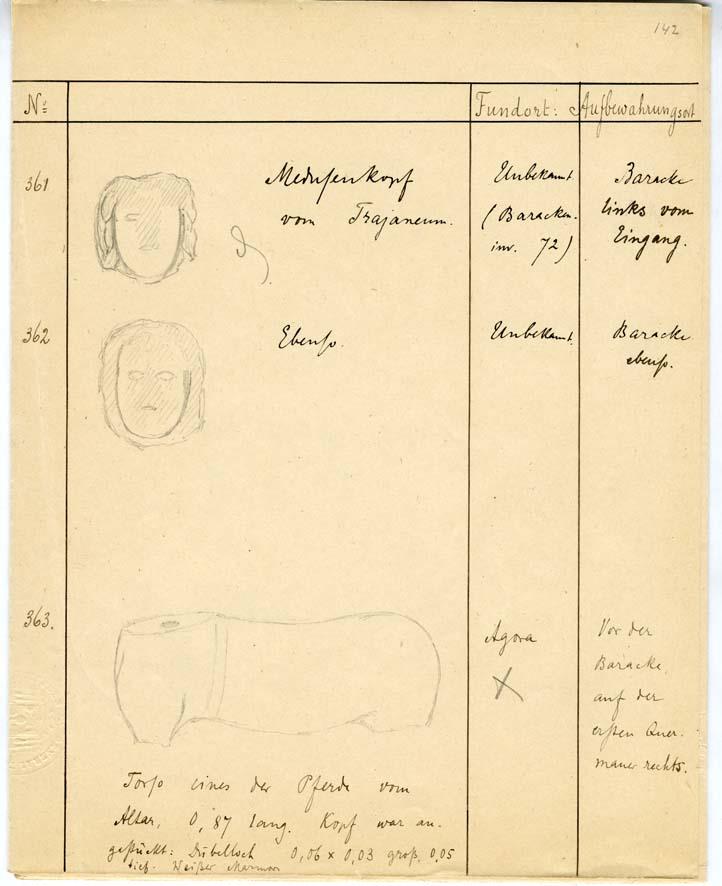 142
No: Fundort: Aufbewahrungsort
361 Medusenkopf Unbekannt Baracke
vom Trajaneum. (Baracken- links vom
inv. 72) Eingang.
362 Ebenso. Unbekannt. Baracke
ebenso.
363. Agora Vor der
Baracke,
auf der
ersten Quer-
mauer rechts.
Torso eines der Pferde vom
Altar, 0,87 lang. Kopf war an-
gestückt: Dübelloch 0,06 x 0,03 groß, 0,05
tief. Weißer Marmor